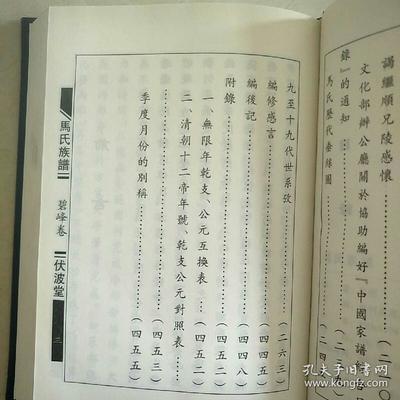 謁繼順兄陵感懷……………(二一〇
文化部辦公廳關於協助編好『中國家譜
錄』的通知………(二
馬氏歷代垂絲圖………(二四
九至十九代世系攷…………(二六三)
編修感言…………(四四五)
編後記…………(四四八)
附錄…………(四五二)
一、無限年乾支、公元互換表…(四五二)
二、清朝十二帝年號、乾支公元對照表…(四五三)
季度月份的別稱…………(四五五)
馬氏族譜
碧峰卷
伏波堂
二
孔夫子旧书网